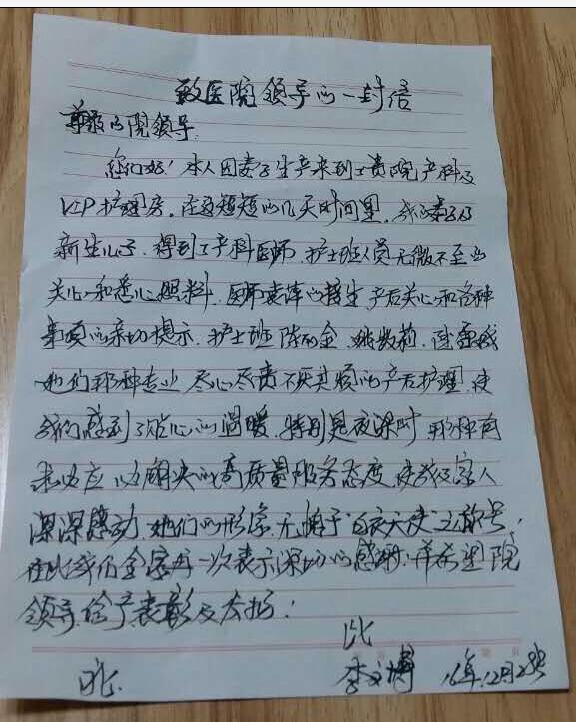 致医院领导的一封信
尊敬的院领导
您们好！本人因妻子生产来到了贵院产科及
VIP护理房，在这短短的几天时间里，我的妻子及
新生儿子，得到了产科医师、护士班人员无微不至的
关心和悉心照料，医师袁萍的接生产后关心和各种
事项的亲切提示，护士班
她们那种专业 尽心尽责不厌其烦的产后护理，使
我们感到了贴心的温暖，特别是夜深时 那种有
求必应 的高质量服务态度，使我及家人
深深感动，她们的形象，无愧于“白衣天使”之称号，
在此我们全家再一次表示深切的感谢，并希望院
领导给予表彰及表扬！
此
李文博 16年12月28